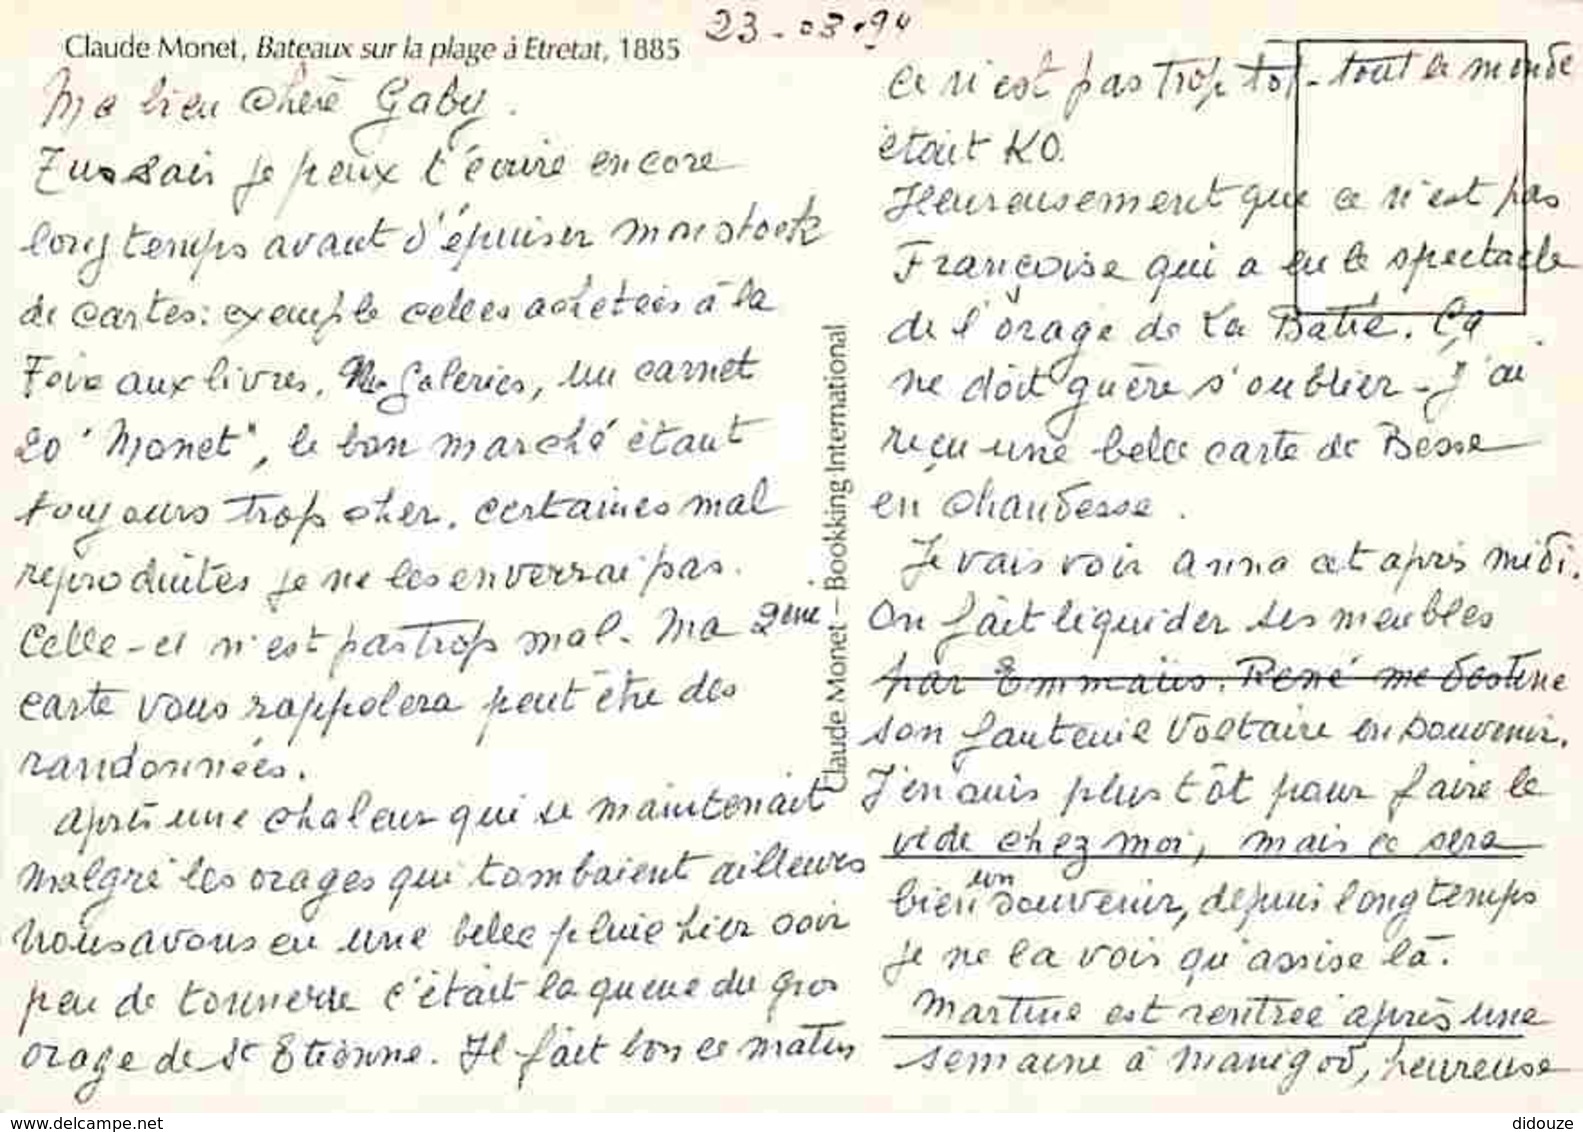 23-03-94
Claude Monet, Bateaux sur la plage à Etretat, 1885
Ma bien chère Gaby.
Tu sais je peux t'écrire encore
longtemps avant d'épuiser mon stock
de cartes: exemple celles achetées à la
Foire aux livres, Nlles Galeries, un carnet
20 "Monet", le bon marché étant
toujours trop cher. certaines mal
reproduites je ne les enverrai pas.
Celle-ci n'est pas trop mal. Ma 2ème
carte vous rappelera peut être des
randonnées.
après une chaleur qui se maintenait
malgré les orages qui tombaient ailleurs
nous avons eu une belle pluie hier soir
peu de tonnerre c'était la queue du gros
orage de St Etienne. Il fait bon ce matin
Claude Monet – Bookking International
ce n'est pas trop tôt - tout le monde
était KO.
Heureusement que ce n'est pas
Françoise qui a eu le spectacle
de l'orage de La Batie. Ça
ne doit guère s'oublier - J'ai
reçu une belle carte de Besse
en Chandesse.
Je vais voir anna cet après midi.
On fait liquider ses meubles
par Emmaüs. René me destine
son fauteuil Voltaire en souvenir.
J'en suis plus tôt pour faire le
vide chez moi, mais ce sera
bien un souvenir, depuis longtemps
je ne la vois qu'assise là.
Martine est rentrée après une
semaine à Manigod, heureuse
delcampe.net
didouze